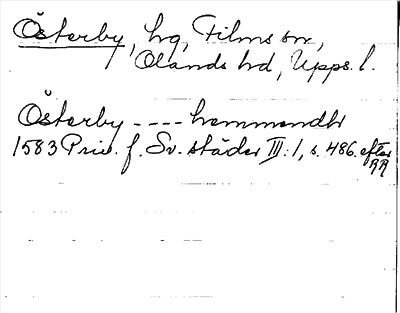 Österby, hg, Films sn,
Olands hd, Upps. l.
Österby ---- hammandhr
1583 Priv. f. Sv. städer III: 1, s. 486. efter
RR